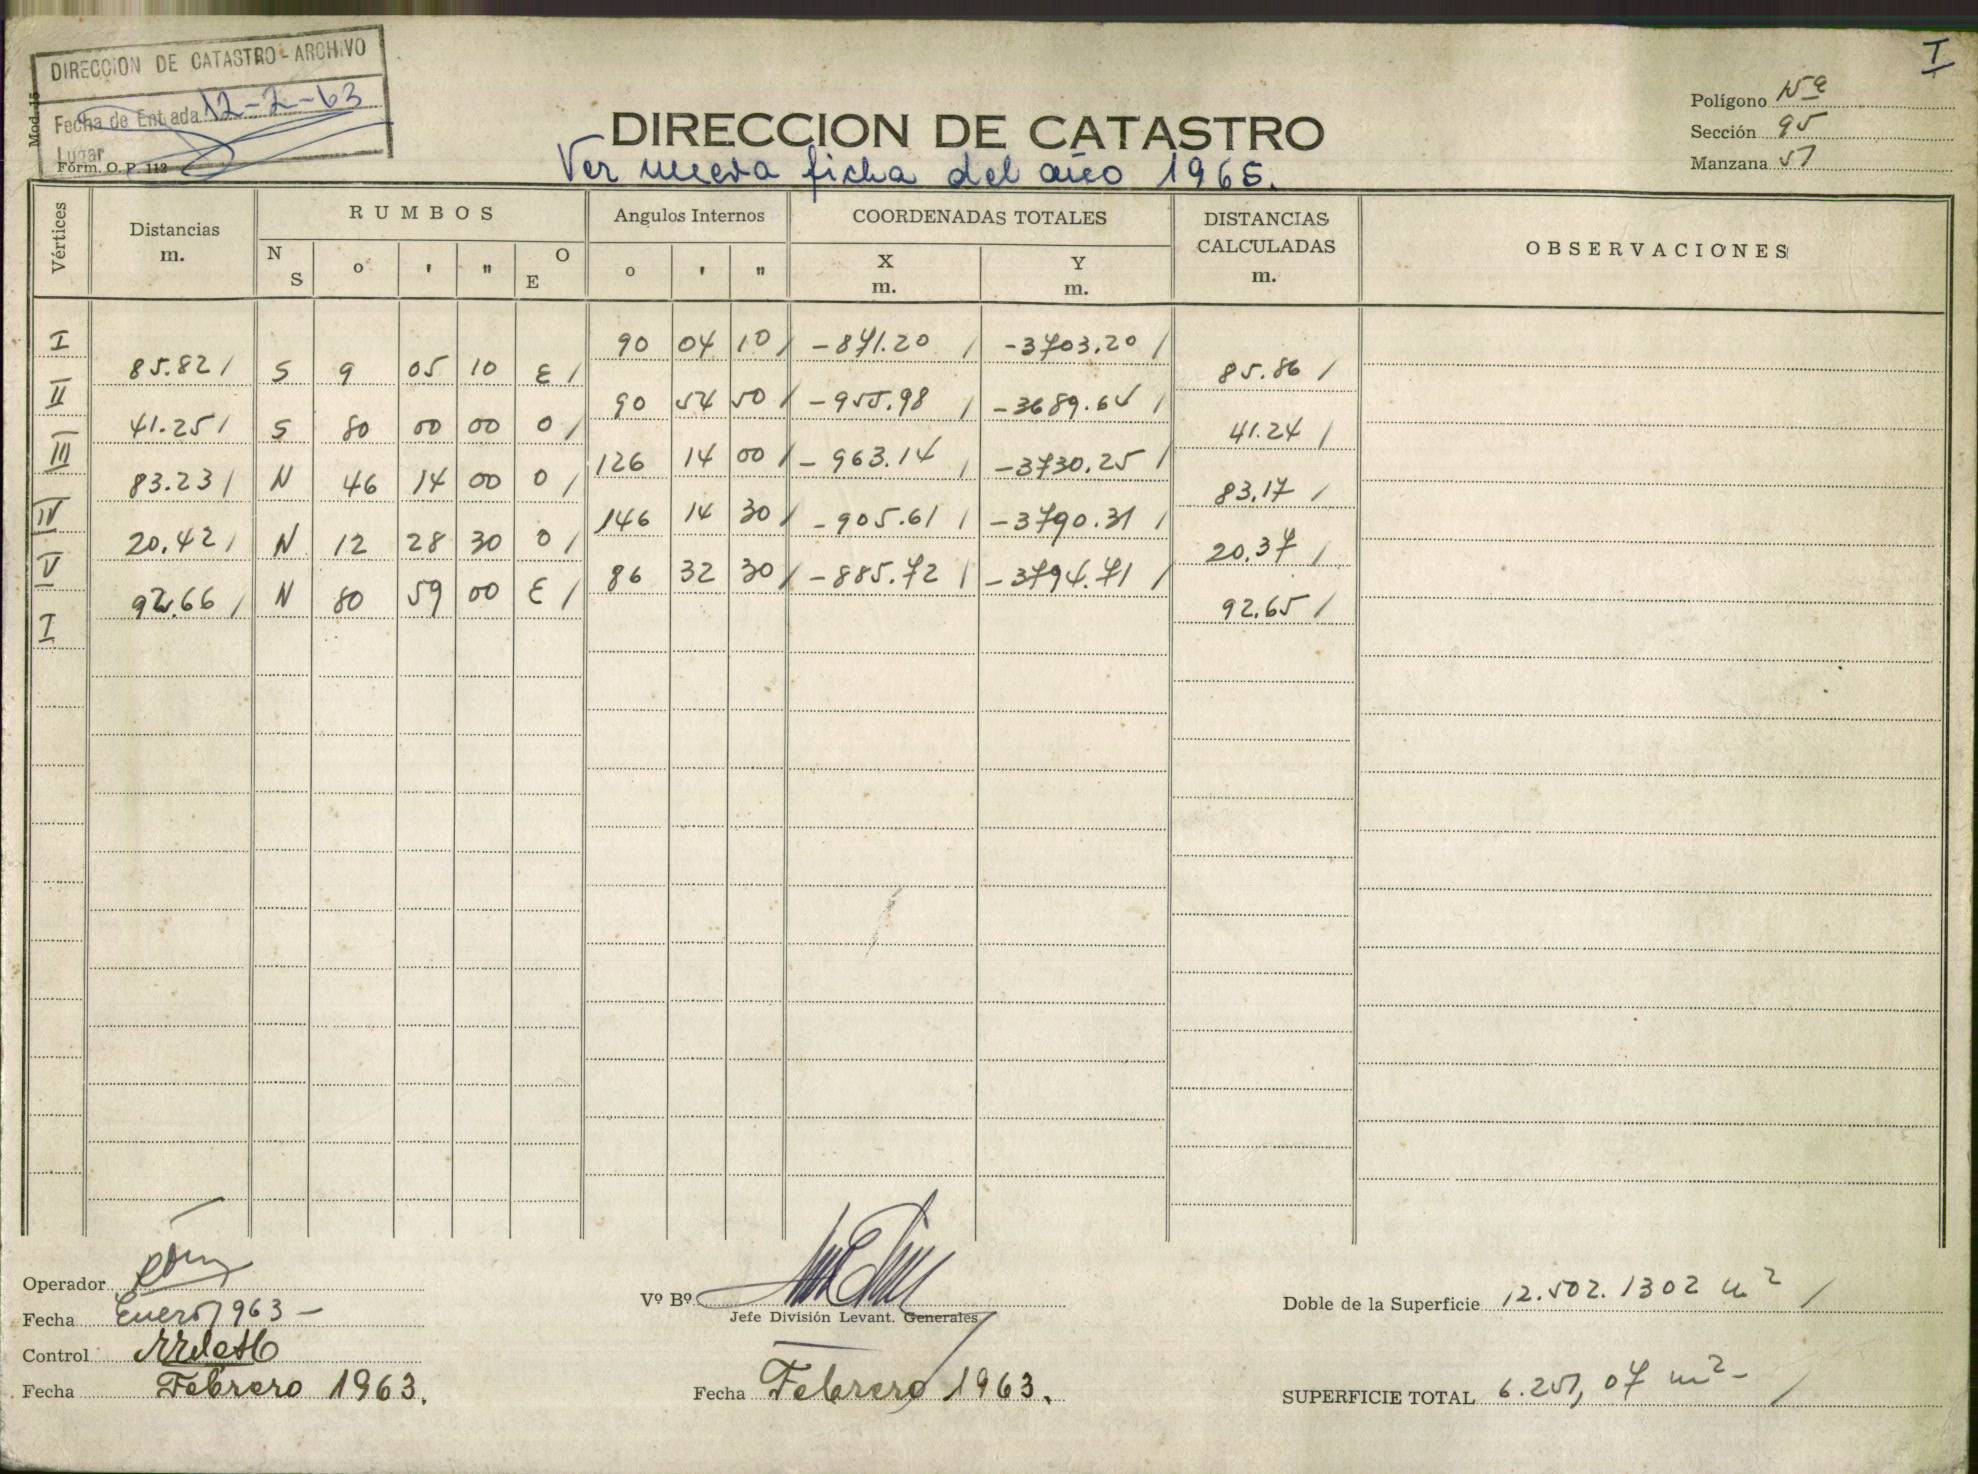 DIRECCION DE CATASTRO - ARCHIVO
Fecha de Entrada 12-2-63
Lugar
Mod. 15
Fórm. O. P. 112
I
DIRECCION DE CATASTRO
Ver nueva ficha del año 1965.
Polígono 15ª
Sección 95
Manzana 51
Vértices Distancias m. RUMBOS Angulos Internos COORDENADAS TOTALES DISTANCIAS CALCULADAS m. OBSERVACIONES
N S o ' " O E o ' " X m. Y m.
I 90 04 10 / -871.20 / -3703.20 /
85.82 / S 9 05 10 E / 85.86 /
II 90 54 50 / -955.98 / -3689.64 /
41.25 / S 80 00 00 O / 41.24 /
III 126 14 00 / -963.14 / -3730.25 /
83.23 / N 46 14 00 O / 83.17 /
IV 146 14 30 / -905.61 / -3790.31 /
20.42 / N 12 28 30 O / 20.37 /
V 86 32 30 / -885.72 / -3794.71 /
92.66 / N 80 59 00 E / 92.65 /
I
Operador
Fecha Enero 1963 -
Control
Fecha Febrero 1963.
Vº Bº
Jefe División Levant. Generales
Fecha Febrero 1963.
Doble de la Superficie 12.502.1302 m2 /
SUPERFICIE TOTAL 6.251,07 m2 - /